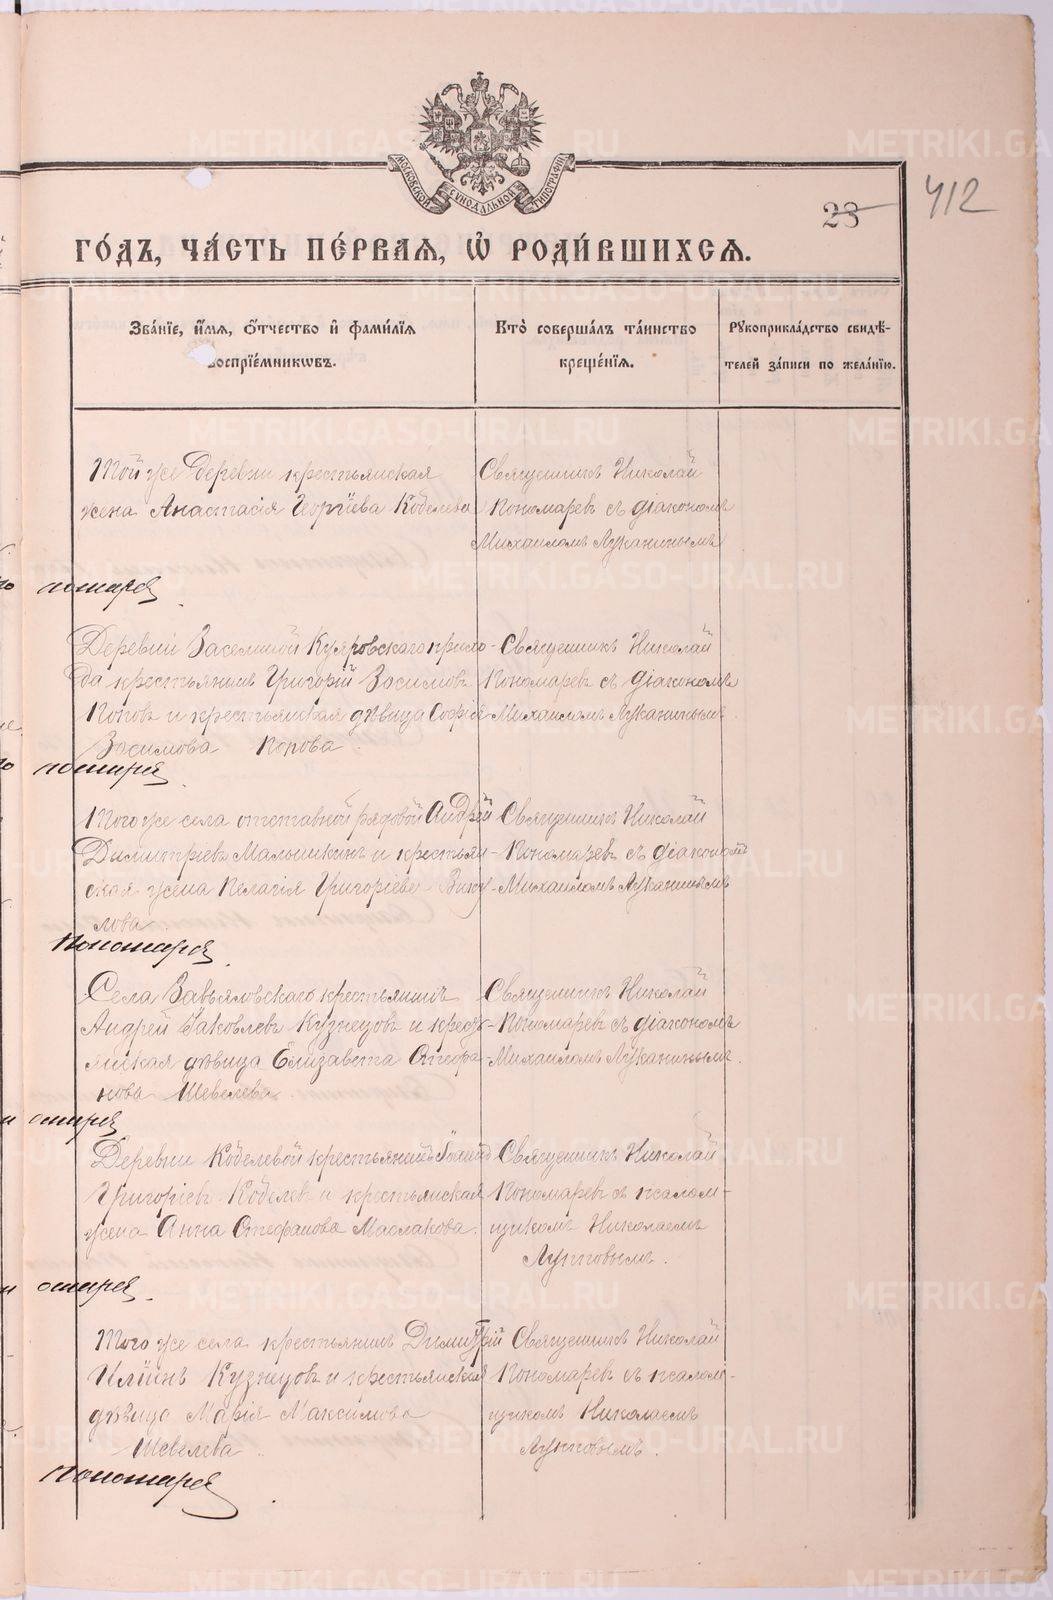 МОСКОВСКОЙ СѴНОДАЛЬНОЙ ТИПОГРАФІИ
23
412
ГО́ДЪ, ЧА́СТЬ ПЕ́РВАѦ, Ѡ҆ РОДИ́ВШИХСѦ.
Зва́нїе, и҆́мѧ, ѻ҆́тчество и҆ фами́лїѧ
воспрїе́мникѡвъ.
Кто̀ соверша́лъ та́инство
креще́нїѧ.
Рꙋкоприкла́дство свидѣ́-
телей за́писи по жела́нїю.
Той же деревни крестьянская
жена Анастасія Георгіева Кобелева
Священникъ Николай
Пономаревъ съ діакономъ
Михаиломъ Луканинымъ
Деревни Засѣкиной Кулровскаго прихо-
да крестьянинъ Григорій Зосимовъ
Поповъ и крестьянская дѣвица Софія
Зосимова Попова.
Священникъ Николай
Пономаревъ съ діакономъ
Михаиломъ Луканинымъ
Того же села отставной рядовой Андрей
Димитріевъ Малышкинъ и крестьян-
ская жена Пелагія Григоріева
лова.
Священникъ Николай
Пономаревъ съ діакономъ
Михаиломъ Луканинымъ
Села Завьяловскаго крестьянинъ
Андрей Іаковлевъ Кузнецовъ и кресть-
янская дѣвица Елизавета Стефа-
нова Шевелева.
Священникъ Николай
Пономаревъ съ діакономъ
Михаиломъ Луканинымъ.
Деревни Кобелевой крестьянинъ
Григоріевъ Кобелевъ и крестьянская
жена Анна Стефанова Маслакова.
Священникъ Николай
Пономаревъ съ псалом-
щикомъ Николаемъ
Лупповымъ.
Того же села крестьянинъ Димитрій
Иліинъ Кузнецовъ и крестьянская
дѣвица Марія Максимова
Шевелева.
Священникъ Николай
Пономаревъ съ псалом-
щикомъ Николаемъ
Лупповымъ.
METRIKI.GASO-URAL.RU